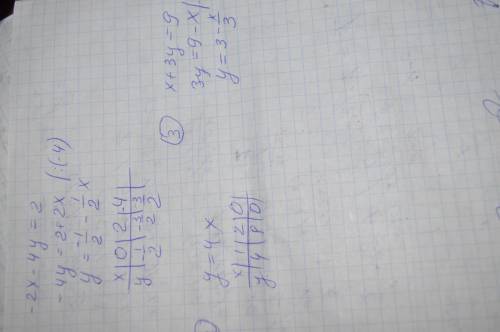 -2x-4y=2
-4y=2+2x |:(-4)
y=-1/2-1/2x
x|0|2|-4|
y|-1/2|-3/2|3/2|
y=4x
x|1|2|0|
y|4|8|0|
③ x+3y=9
3y=9-x|
y=3-x/3